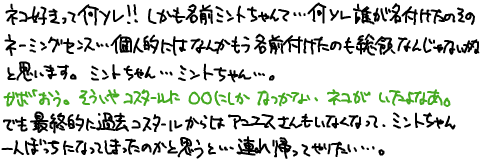 ネコ好きって何ソレ!! しかも名前ミントちゃんて…何ソレ誰が名付けたのその
ネーミングセンス…個人的にはなんかもう名前付けたのも総領なんじゃないかな
と思います。ミントちゃん…ミントちゃん…。
がぶおう。そういやコスタールに○○にしかなつかない、ネコがいたよなあ。
でも最終的に過去コスタールからはアユエスさんもいなくなって、ミントちゃん
一人ぼっちになってしまったのかと思うと…連れ帰ってやりたい…。